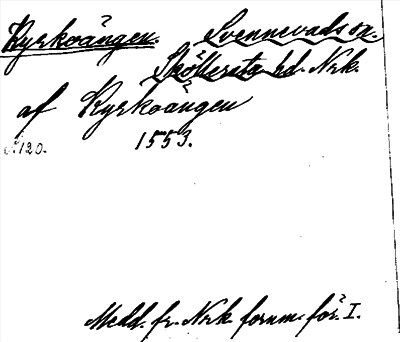 Kyrkoängen. Svennevads sn.
Sköllersta hd. Nrk.
af Kyrkoängen
s. 120. 1553.
Medd. fr. Nrk fornm. för. I.